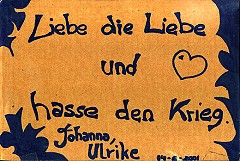 Liebe die Liebe
und
hasse den Krieg.
Johanna
Ulrike